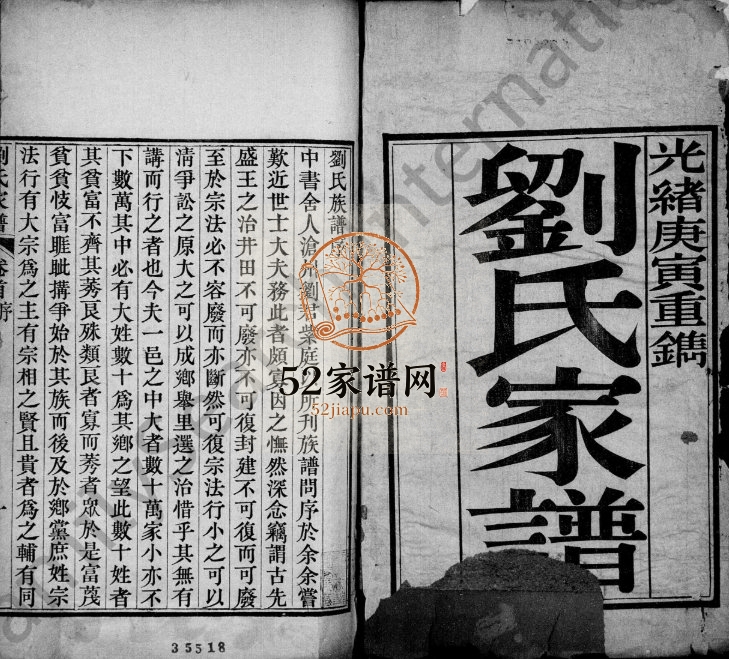 光緒庚寅重鐫
劉氏家譜
劉氏族譜
中書舍人滄 劉君柴庭 所刊族譜問序於余余嘗
歎近世士大夫務此者頗寡因之憮然深念竊謂古先
盛王之治井田不可廢亦不可復封建不可復而可廢
至於宗法必不容廢而亦斷然可復宗法行小之可以
清爭訟之原大之可以成鄉舉里選之治惜乎其無有
講而行之者也今夫一邑之中大者數十萬家小亦不
下數萬其中必有大姓數十爲其鄉之望此數十姓者
其貧富不齊其莠良殊類良者寡而莠者眾於是富茂
貧貧忮富睚眦搆爭始於其族而後及於鄉黨庶姓宗
法行有大宗爲之主有宗相之賢且貴者爲之輔有同
劉氏家譜 卷首序 一
35518
52家谱网
52jiapu.com